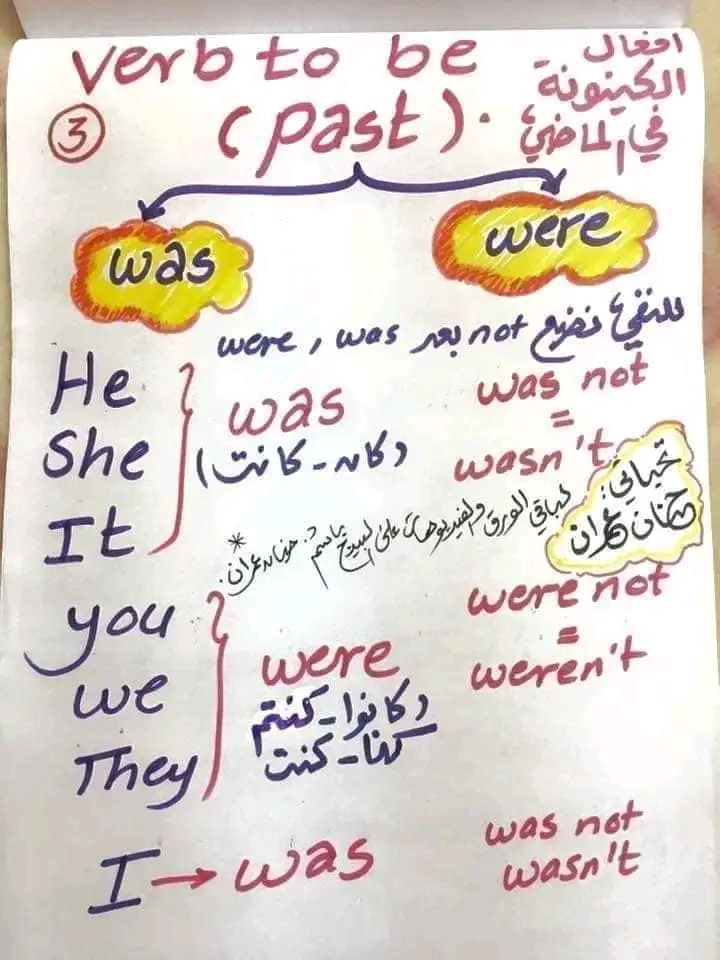 Verb to be
(past).
افعال
الكينونة
في الماضي
3
was
were
للنفي نضع not بعد was , were
He
She
It
was
(كان - كانت)
was not
=
wasn't
تحياتي:
حنان عمران
* لباقي الورق والفيديوهات على البيدج باسم: حنان عمران.
you
we
They
were
كانوا - كنتم
كنا - كنت
were not
=
weren't
I → was
was not
wasn't